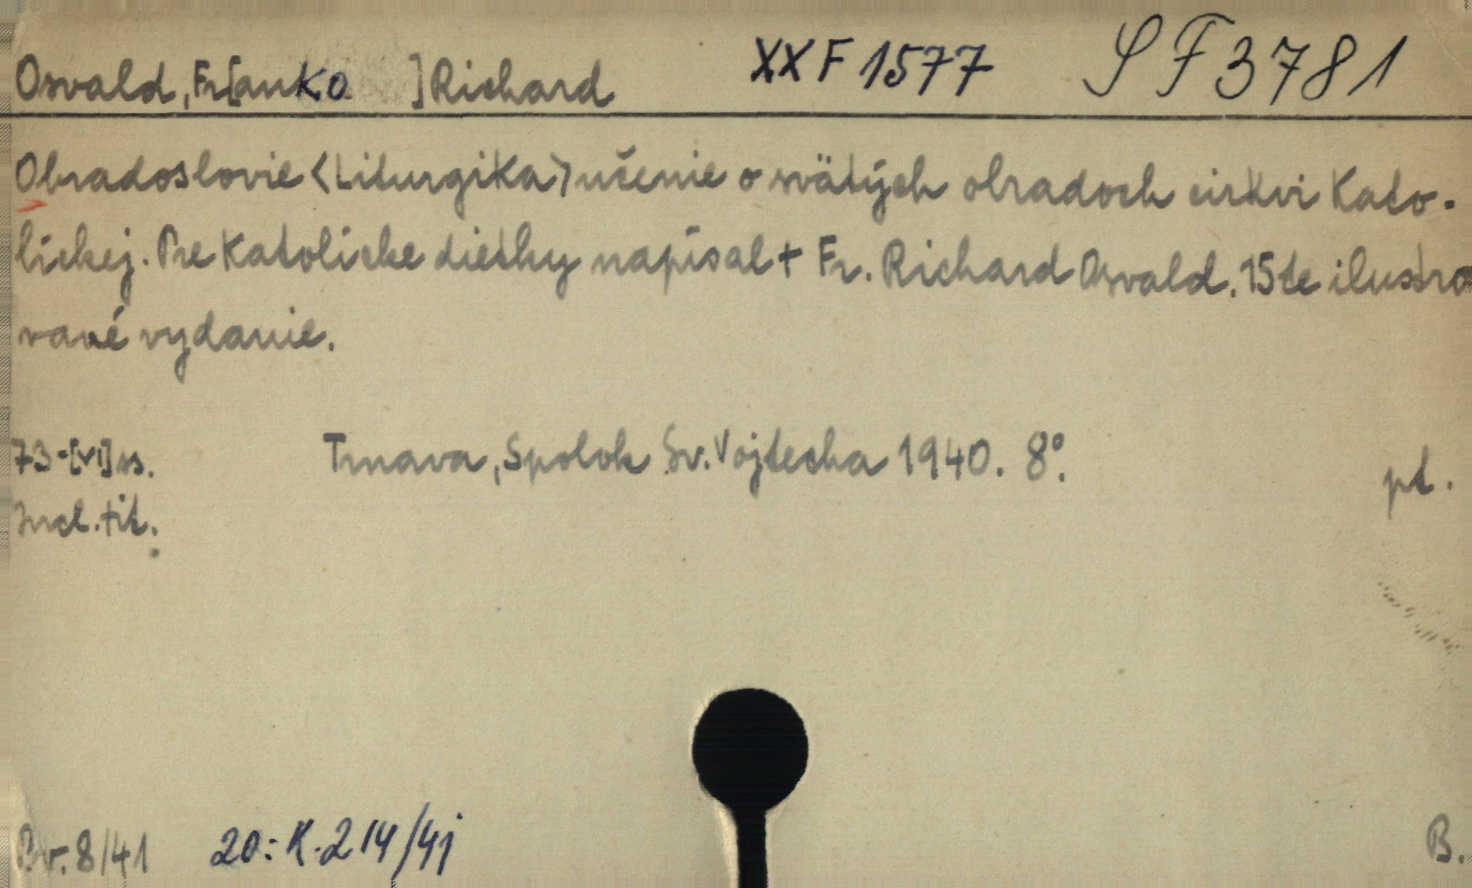 Osvald, Fr[anko ] Richard XX F 1577 SF 3781
Obradoslovie <Liturgika> učenie o svätých obradoch cirkvi kato-
líckej. Pre katolícke dietky napísal + Fr. Richard Osvald. 15te ilustro
vané vydanie.
73-[VI] ss. Trnava, Spolok Sv. Vojtecha 1940. 8°. pt.
Incl. tit.
Bv. 8/41 20: K. 214/41 B.